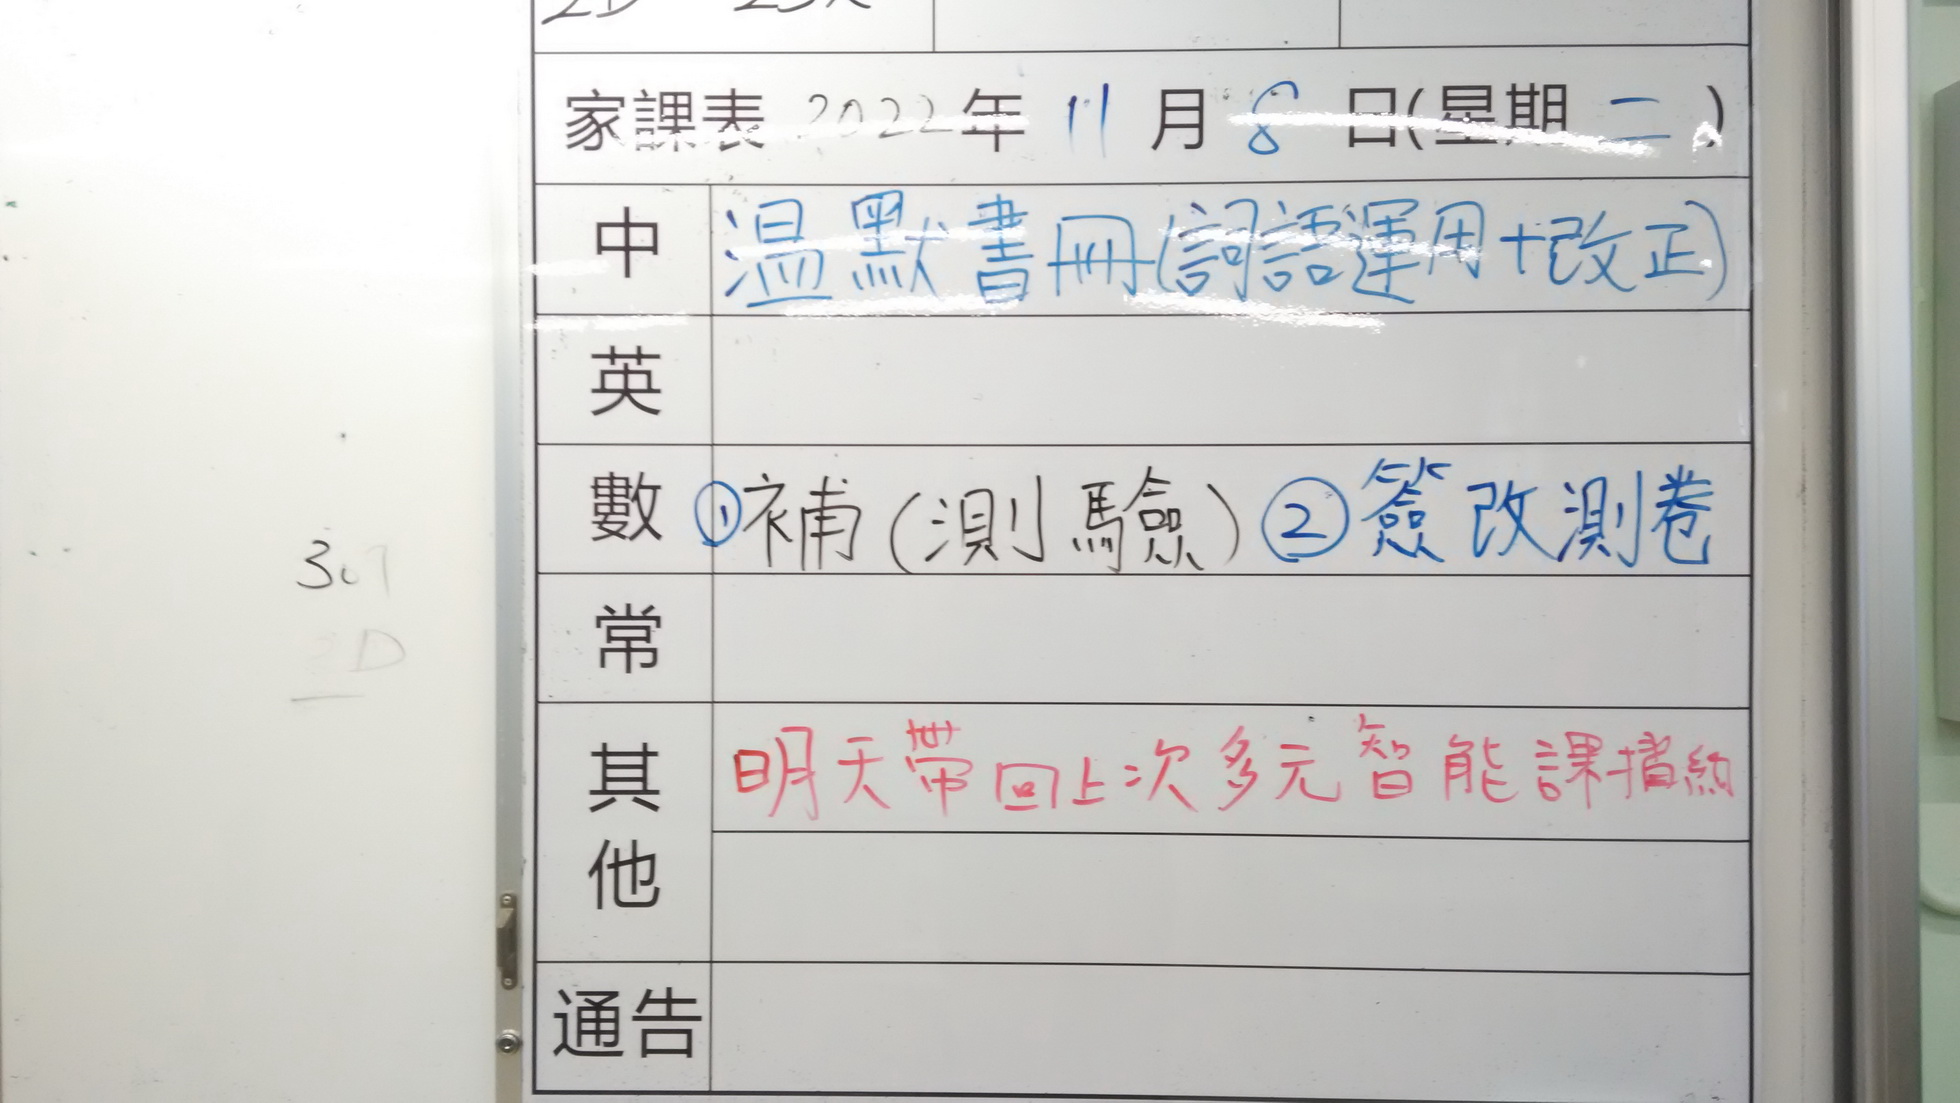 家課表 2022年 11月8日(星期二)
中 温默書冊(詞語運用+改正)
英
數 ①補(測驗) ②簽改測卷
常
其他 明天帶回上次多元智能課摺紙
通告
30
2D